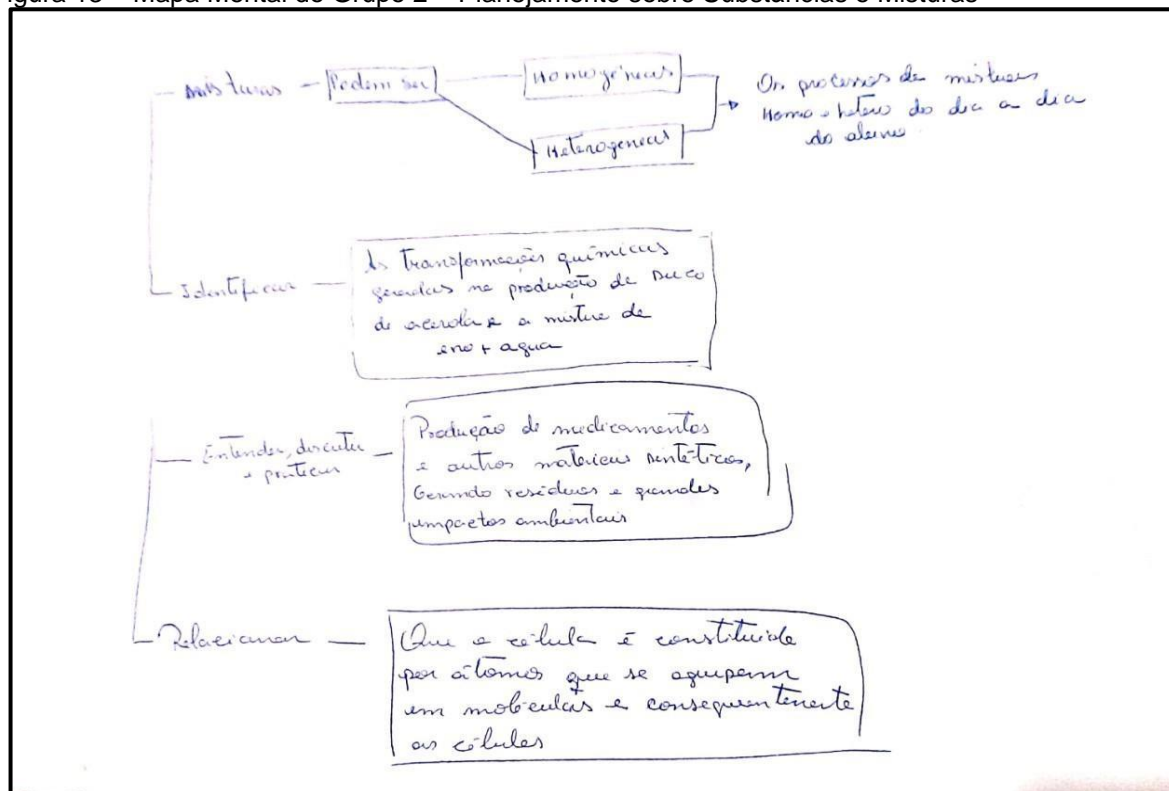 igura 18 – Mapa Mental do Grupo 2 – Planejamento sobre Substâncias e Misturas
Misturas
Podem ser
Homogêneas
Heterogeneas
Os processos de misturas
Homo e hetero do dia a dia
do aluno
Identificar
As transformações químicas
geradas na produção de suco
de acerola e a mistura de
eno + agua
Entender, discutir
e praticar
Produção de medicamentos
e outros materiais sintéticos,
Gerando resíduos e grandes
impactos ambientais
Relacionar
Que a célula é constituida
por átomos que se agrupam
em moléculas e consequentemente
as células